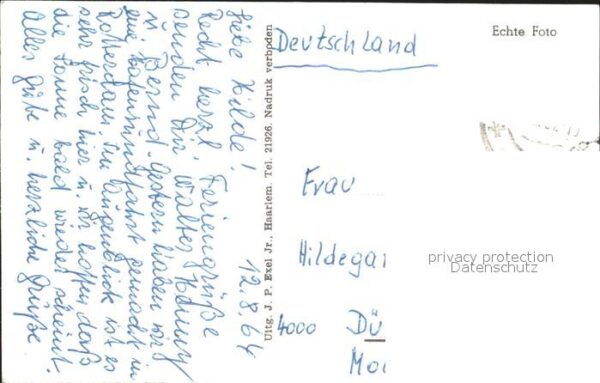 12.8.64
Liebe Hilde!
Recht herzl. Feriengrüße
senden Dir Walter,
u. Bernd. Gestern haben wir
eine Hafenrundfahrt gemacht in
Rotterdam. Im Augenblick ist es
sehr frisch hier u. wir hoffen, daß
die Sonne bald wieder scheint.
Alles Gute u. herzliche Grüße.
Uitg. J. P. Exel Jr., Haarlem. Tel. 21926. Nadruk verboden
Echte Foto
Deutschland
Frau
Hildegar
4000 Dü
Mo
privacy protection
Datenschutz